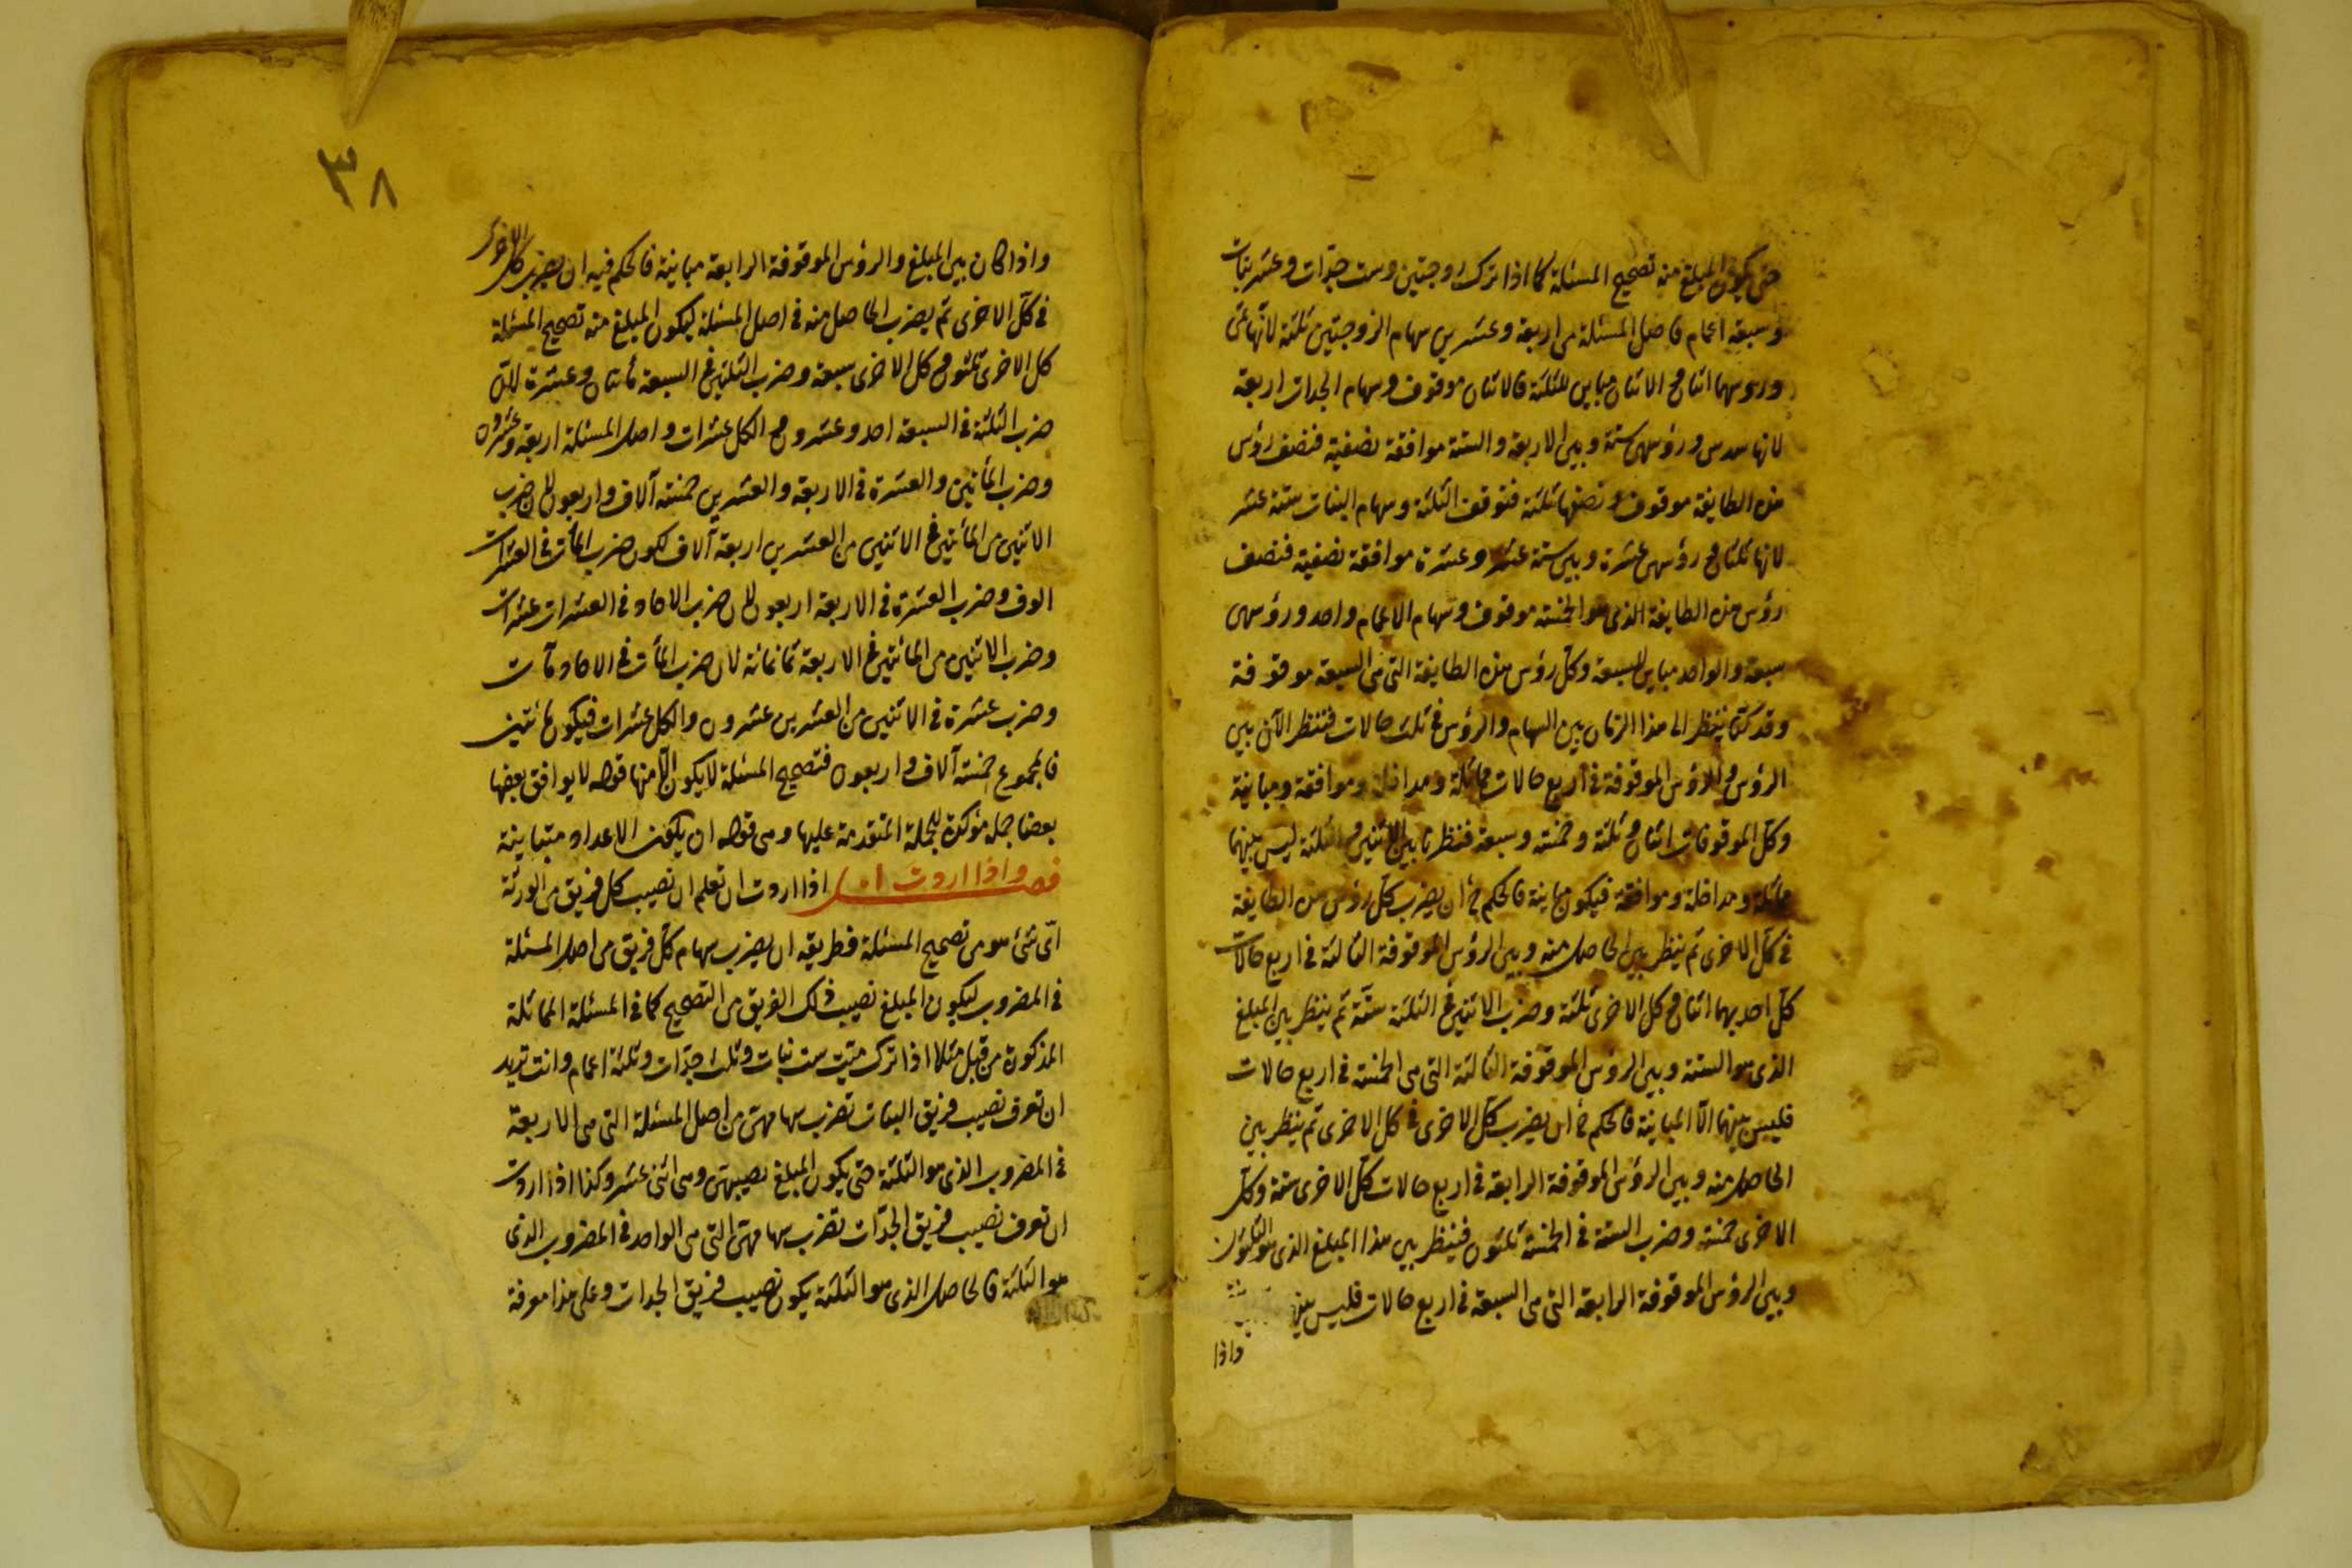 حتى يكون المبلغ منه تصحيح المسئلة كما اذا ترك زوجتين وست جدّات وعشر بنات
وسبعة اعمام فاصل المسئلة من اربعة وعشرين سهام الزوجتين ثلثة لانها ثمن
ورؤسهما اثنان والاثنان مباين للثلثة فالاثنان موقوف وسهام الجدات اربعة
لانها سدس ورؤسهن ستة وبين الاربعة والستة موافقة نصفية فنصف رؤس
هذه الطايفة موقوف ونصفها ثلثة فتوقف الثلثة وسهام البنات ستة عشر
لانها ثلثان ورؤسهن عشرة وبين ستة عشر وعشرة موافقة نصفية فنصف
رؤس هذه الطايفة الذى هو الخمسة موقوف وسهام الاعمام واحد ورؤسهم
سبعة والواحد مباين للسبعة وكل رؤس هذه الطايفة التى هى السبعة موقوفة
وقد كنا ننظر الى هذا الزمان بين السهام والرؤس فى ثلث حالات فننظر الآن بين
الرؤس والرؤس الموقوفة فى اربع حالات مماثلة ومداخلة وموافقة ومباينة
وكل الموقوفات اثنان وثلثة وخمسة وسبعة فنظرنا بين الاثنين والثلثة ليس بينهما
مماثلة ومداخلة وموافقة فيكون مباينة فالحكم فيه أن يضرب كل رؤس هذه الطايفة
فى كل الاخرى ثم ينظر بين الحاصل منه وبين الرؤس الموقوفة الثالثة فى اربع حالات
كل احديهما اثنان وكل الاخرى ثلثة وضرب الاثنين فى الثلثة ستّة ثم ينظر بين المبلغ
الذى هو الستة وبين الرؤس الموقوفة الثالثة التى هى الخمسة فى اربع حالات
فليس بينهما الّا المباينة فالحكم فيه أن يضرب كل الاخرى فى كل الاخرى ثم ينظر بين
الحاصل منه وبين الرؤس الموقوفة الرابعة فى اربع حالات كل الاخرى ستة وكل
الاخرى خمسة وضرب الستة فى الخمسة ثلثون فينظر بين هذا المبلغ الذى هو الثلثون
وبين الرؤس الموقوفة الرابعة التى هى السبعة فى اربع حالات فليس
واذا
٣٨
واذا كان بين المبلغ والرؤس الموقوفة الرابعة مباينة فالحكم فيه ان يضرب كل الاخرى
فى كل الاخرى ثم يضرب الحاصل منه فى اصل المسئلة ليكون المبلغ منه تصحيح المسئلة
كل الاخرى ثلثون وكل الاخرى سبعة وضرب الثلثين فى السبعة مأتان وعشرة لانّ
ضرب الثلثة فى السبعة احد وعشرون والكل عشرات واصل المسئلة اربعة وعشرون
وضرب المأتين والعشرة فى الاربعة والعشرين خمسة آلاف واربعون لان ضرب
الاثنين من المأتين فى الاثنين من العشرين اربعة آلاف لكون ضرب المأت فى العشرات
الوف وضرب العشرة فى الاربعة اربعون لان ضرب الاحاد فى العشرات عشرات
وضرب الاثنين من المائتين فى الاربعة ثمانمائة لان ضرب المأت فى الاحاد مآت
وضرب عشرة فى الاثنين من العشرين عشرون والكل عشرات فيكون مائتين
فالمجموع خمسة آلاف واربعون فتصحيح المسئلة لا يكون الّا منها قوله لا يوافق بعضها
بعضا جملة مؤكدة للجملة المتقدمة عليها وهى قوله ان يكون الاعداد متباينة
فصل واذا اردت اه اذا اردت ان تعلم ان نصيب كل فريق من الورثة
اىّ شئ هو من تصحيح المسئلة فطريقه ان يضرب سهام كل فريق من اصل المسئلة
فى المضروب ليكون المبلغ نصيب ذلك الفريق من التصحيح كما فى المسئلة المماثلة
المذكورة من قبل مثلا اذا ترك ميت ست بنات وثلث جدّات وثلثة اعمام وانت تريد
ان تعرف نصيب فريق البنات تضرب سهامهن من اصل المسئلة التى هى الاربعة
فى المضروب الذى هو الثلثة حتى يكون المبلغ نصيبهن وهى اثنى عشر وكذا اذا اردت
ان تعرف نصيب فريق الجدّات تضرب سهامهن التى هى الواحد فى المضروب الذى
هو الثلثة فالحاصل الذى هو الثلثة يكون نصيب فريق الجدات وعلى هذا معرفة